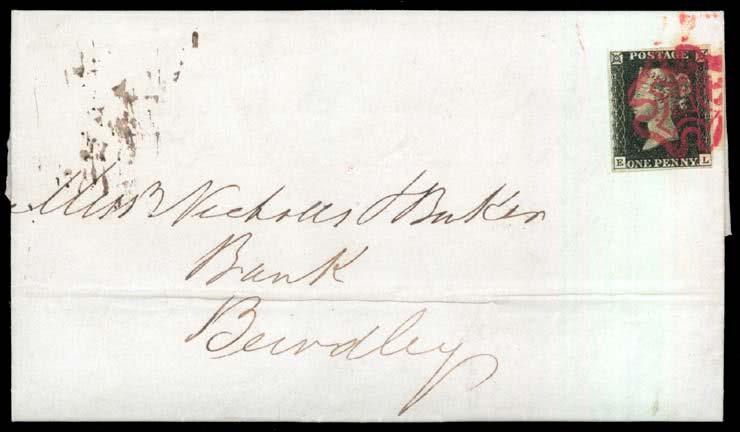 POSTAGE
E ONE PENNY L
Messrs Nicholls & Baker
Bank
Bewdley